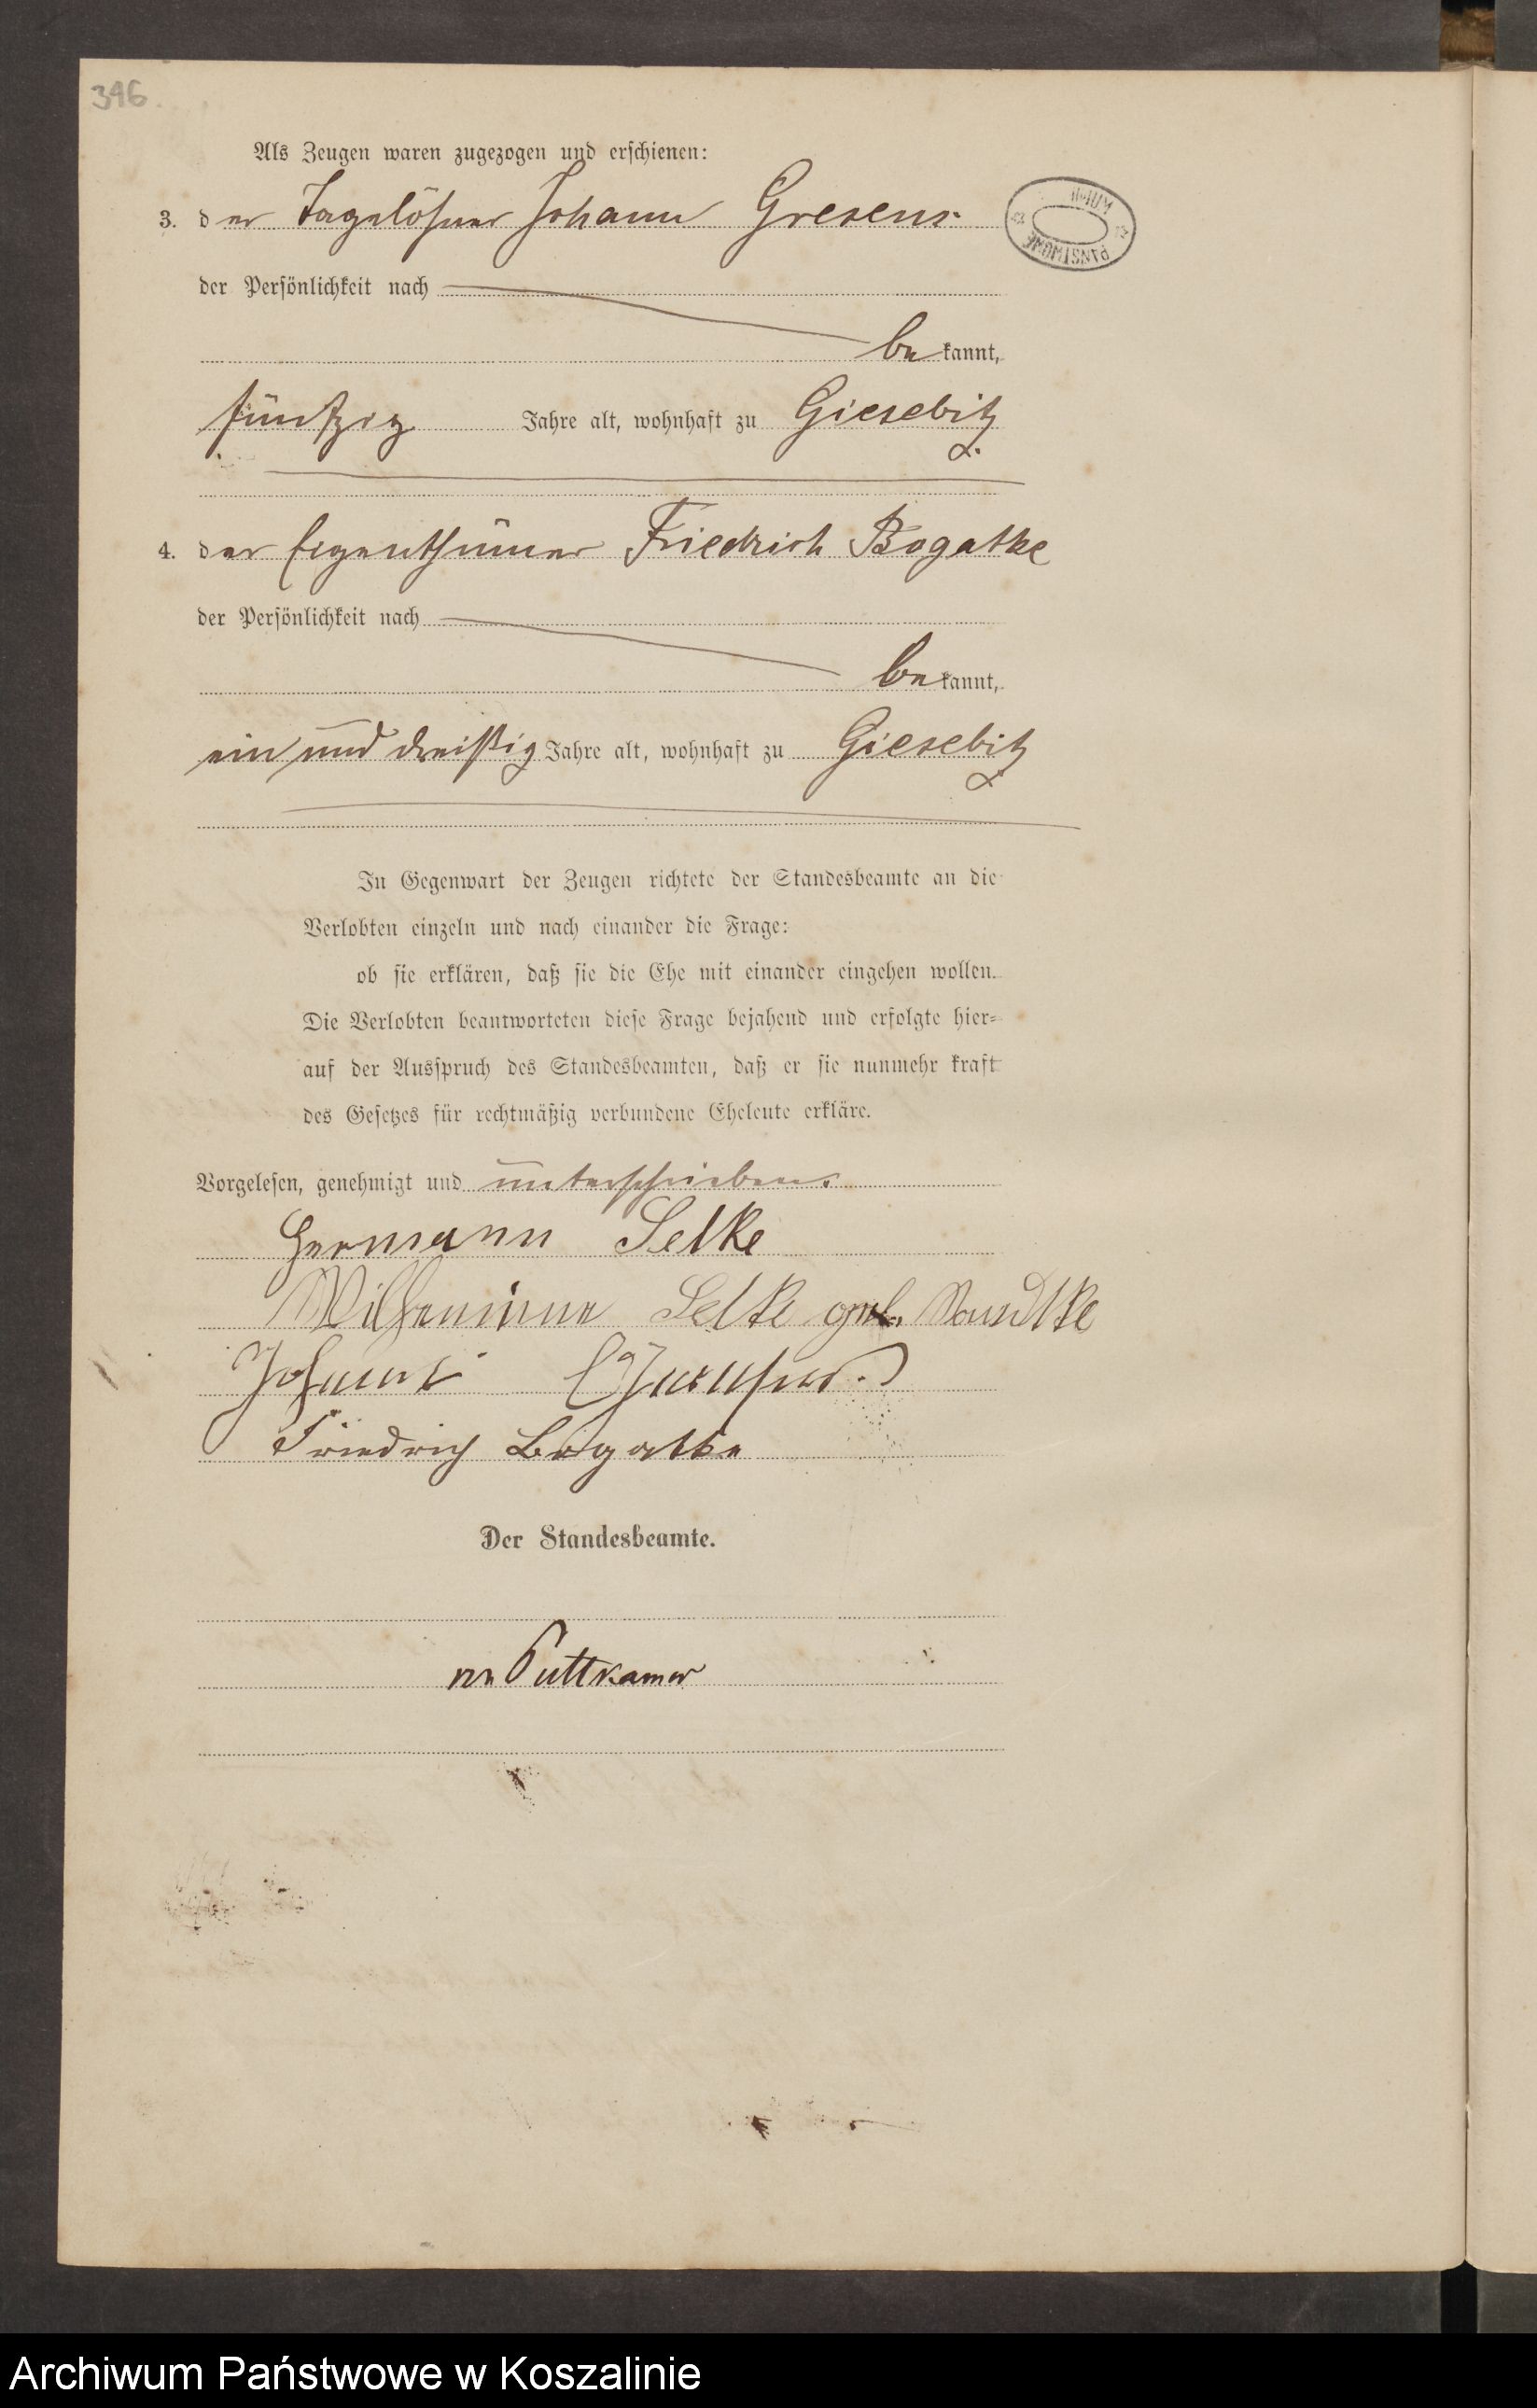 396.
Als Zeugen waren zugezogen und erschienen:
3. der Tagelöhner Johann Gresens
der Persönlichkeit nach
bekannt,
fünfzig Jahre alt, wohnhaft zu Giesebitz
4. der Eigenthümer Friedrich Bogatke
der Persönlichkeit nach
bekannt,
ein und dreißig Jahre alt, wohnhaft zu Giesebitz
In Gegenwart der Zeugen richtete der Standesbeamte an die
Verlobten einzeln und nach einander die Frage:
ob sie erklären, daß sie die Ehe mit einander eingehen wollen.
Die Verlobten beantworteten diese Frage bejahend und erfolgte hier-
auf der Ausspruch des Standesbeamten, daß er sie nunmehr kraft
des Gesetzes für rechtmäßig verbundene Eheleute erkläre.
Vorgelesen, genehmigt und unterschrieben.
Hermann Selke
Wilhemine Selke geb.
Johann
Friedrich Bogatke
Der Standesbeamte.
von Puttkamer
Archiwum Państwowe w Koszalinie